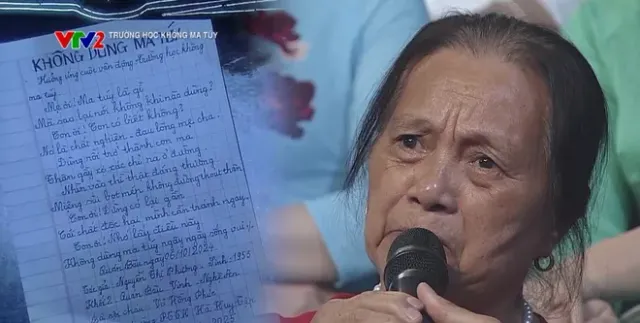 VTV2 TRƯỜNG HỌC KHÔNG MA TÚY
KHÔNG DÙNG MA TÚY
Hưởng ứng cuộc vận động trường học không
ma túy
Mẹ ơi! Ma túy là gì
Mà sao lại nói không khi nào dùng?
Con ơi! Con có biết không?
Nó là chất nghiện - đau lòng mẹ cha
Đừng nói trở thành con ma
Thân gầy xơ xác chỉ ra ở đường
Nhìn vào thì thật đáng thương
Miệng sùi bọt mép không đường
Con ơi! Đừng có lại gần
Cái chất độc hại mình cần tránh ngay
Con ơi! Nhớ lấy điều này
Không dùng ma túy ngày ngày sống vui
Quán Bàu ngày 05/10/2024
Tác giả: Nguyễn Thị Phương - Sinh 1955
Khối 2 - Quán Bàu - Vinh - Nghệ An
Vũ Hồng Phú